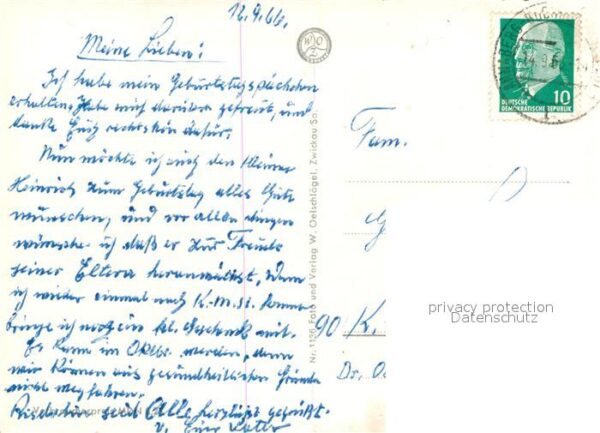 12.9.66.
Meine Lieben!
Ich habe mein Geburtstagspäckchen
erhalten, habe mich darüber gefreut, und
danke Euch rechtschön dafür.
Nun möchte ich auch den kleinen
Heinrich zum Geburtstag alles Gute
wünschen, und vor allen dingen
wünsche ich daß er zur Freude
seiner Eltern heranwächst, Wenn
ich wieder einmal nach K.-M.-St. komme
bringe ich noch ein kl. Geschenk mit.
Es kann im Oktbr. werden, denn
wir können aus gesundheitlichen Gründen
nicht wegfahren.
seid Alle herzlichst gegrüßt.
v. Euer Vater
Nr. 1136 Foto und Verlag W. Oelschlägel, Zwickau Sa.
DEUTSCHE
DEMOKRATISCHE REPUBLIK
10
Fam.
90 K.
privacy protection
Datenschutz